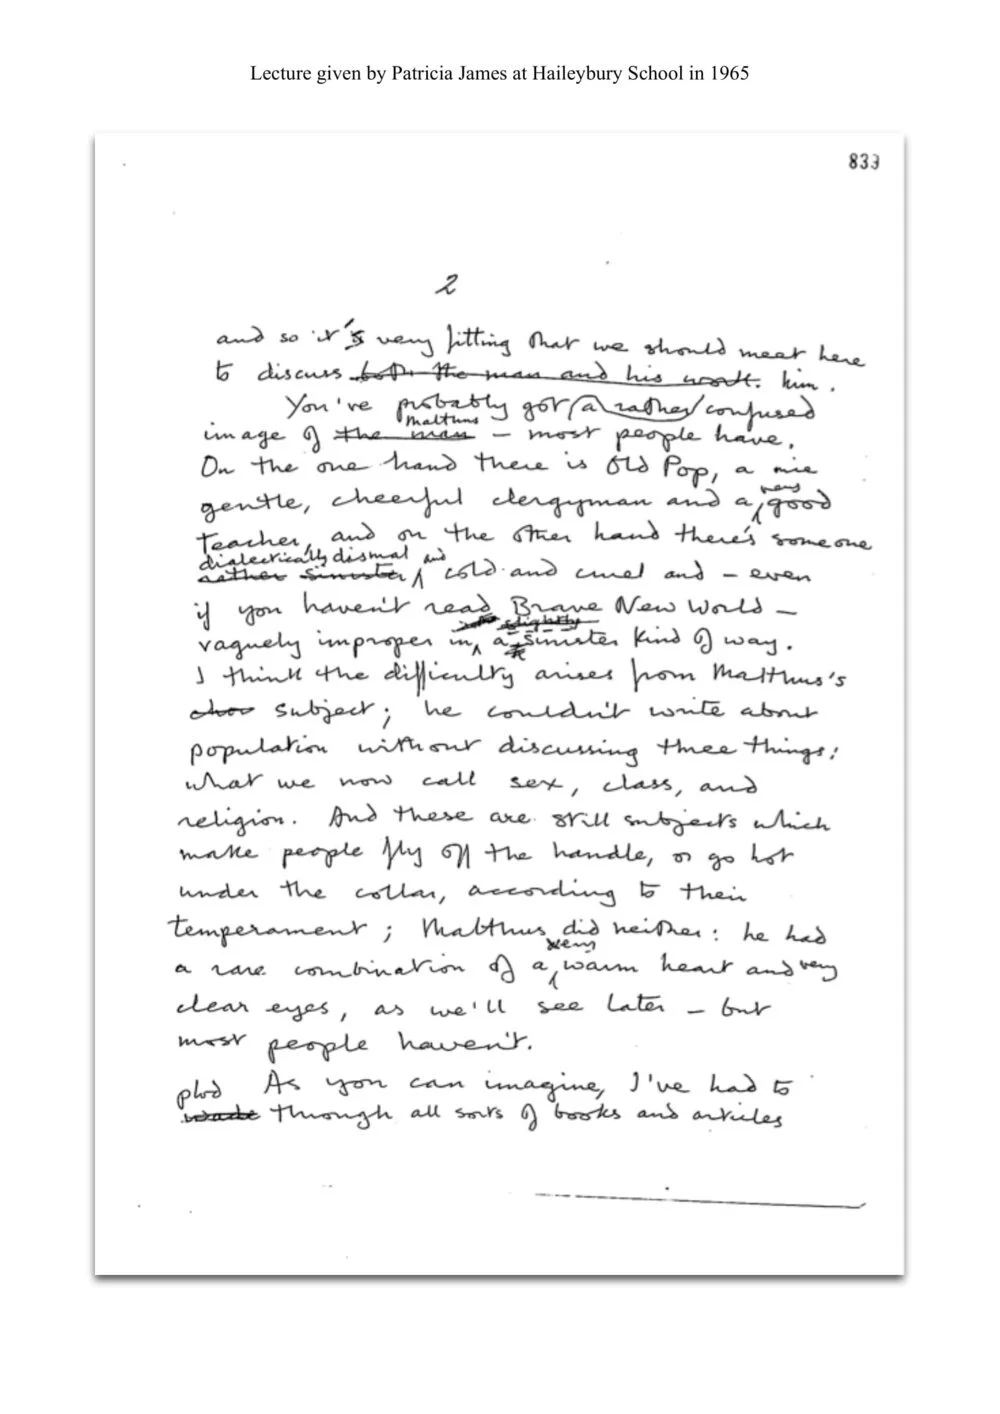 Lecture given by Patricia James at Haileybury School in 1965
833
2
and so it's very fitting that we should meet here
to discuss both the man and his work. him.
You've probably got (a rather) confused
Malthus
image of the man – most people have.
On the one hand there is Old Pop, a nice
very
gentle, cheerful clergyman and a good
teacher, and on the other hand there's someone
dialectically dismal and
rather sinister, cold and cruel and – even
if you haven't read Brave New World –
slightly
vaguely improper in a sinister kind of way.
I think the difficulty arises from Malthus's
subject; he couldn't write about
population without discussing three things:
what we now call sex, class, and
religion. And these are still subjects which
make people fly off the handle, or go hot
under the collar, according to their
temperament; Malthus did neither: he had
very
a rare combination of a warm heart and very
clear eyes, as we'll see later – but
most people haven't.
plod As you can imagine, I've had to
wade through all sorts of books and articles